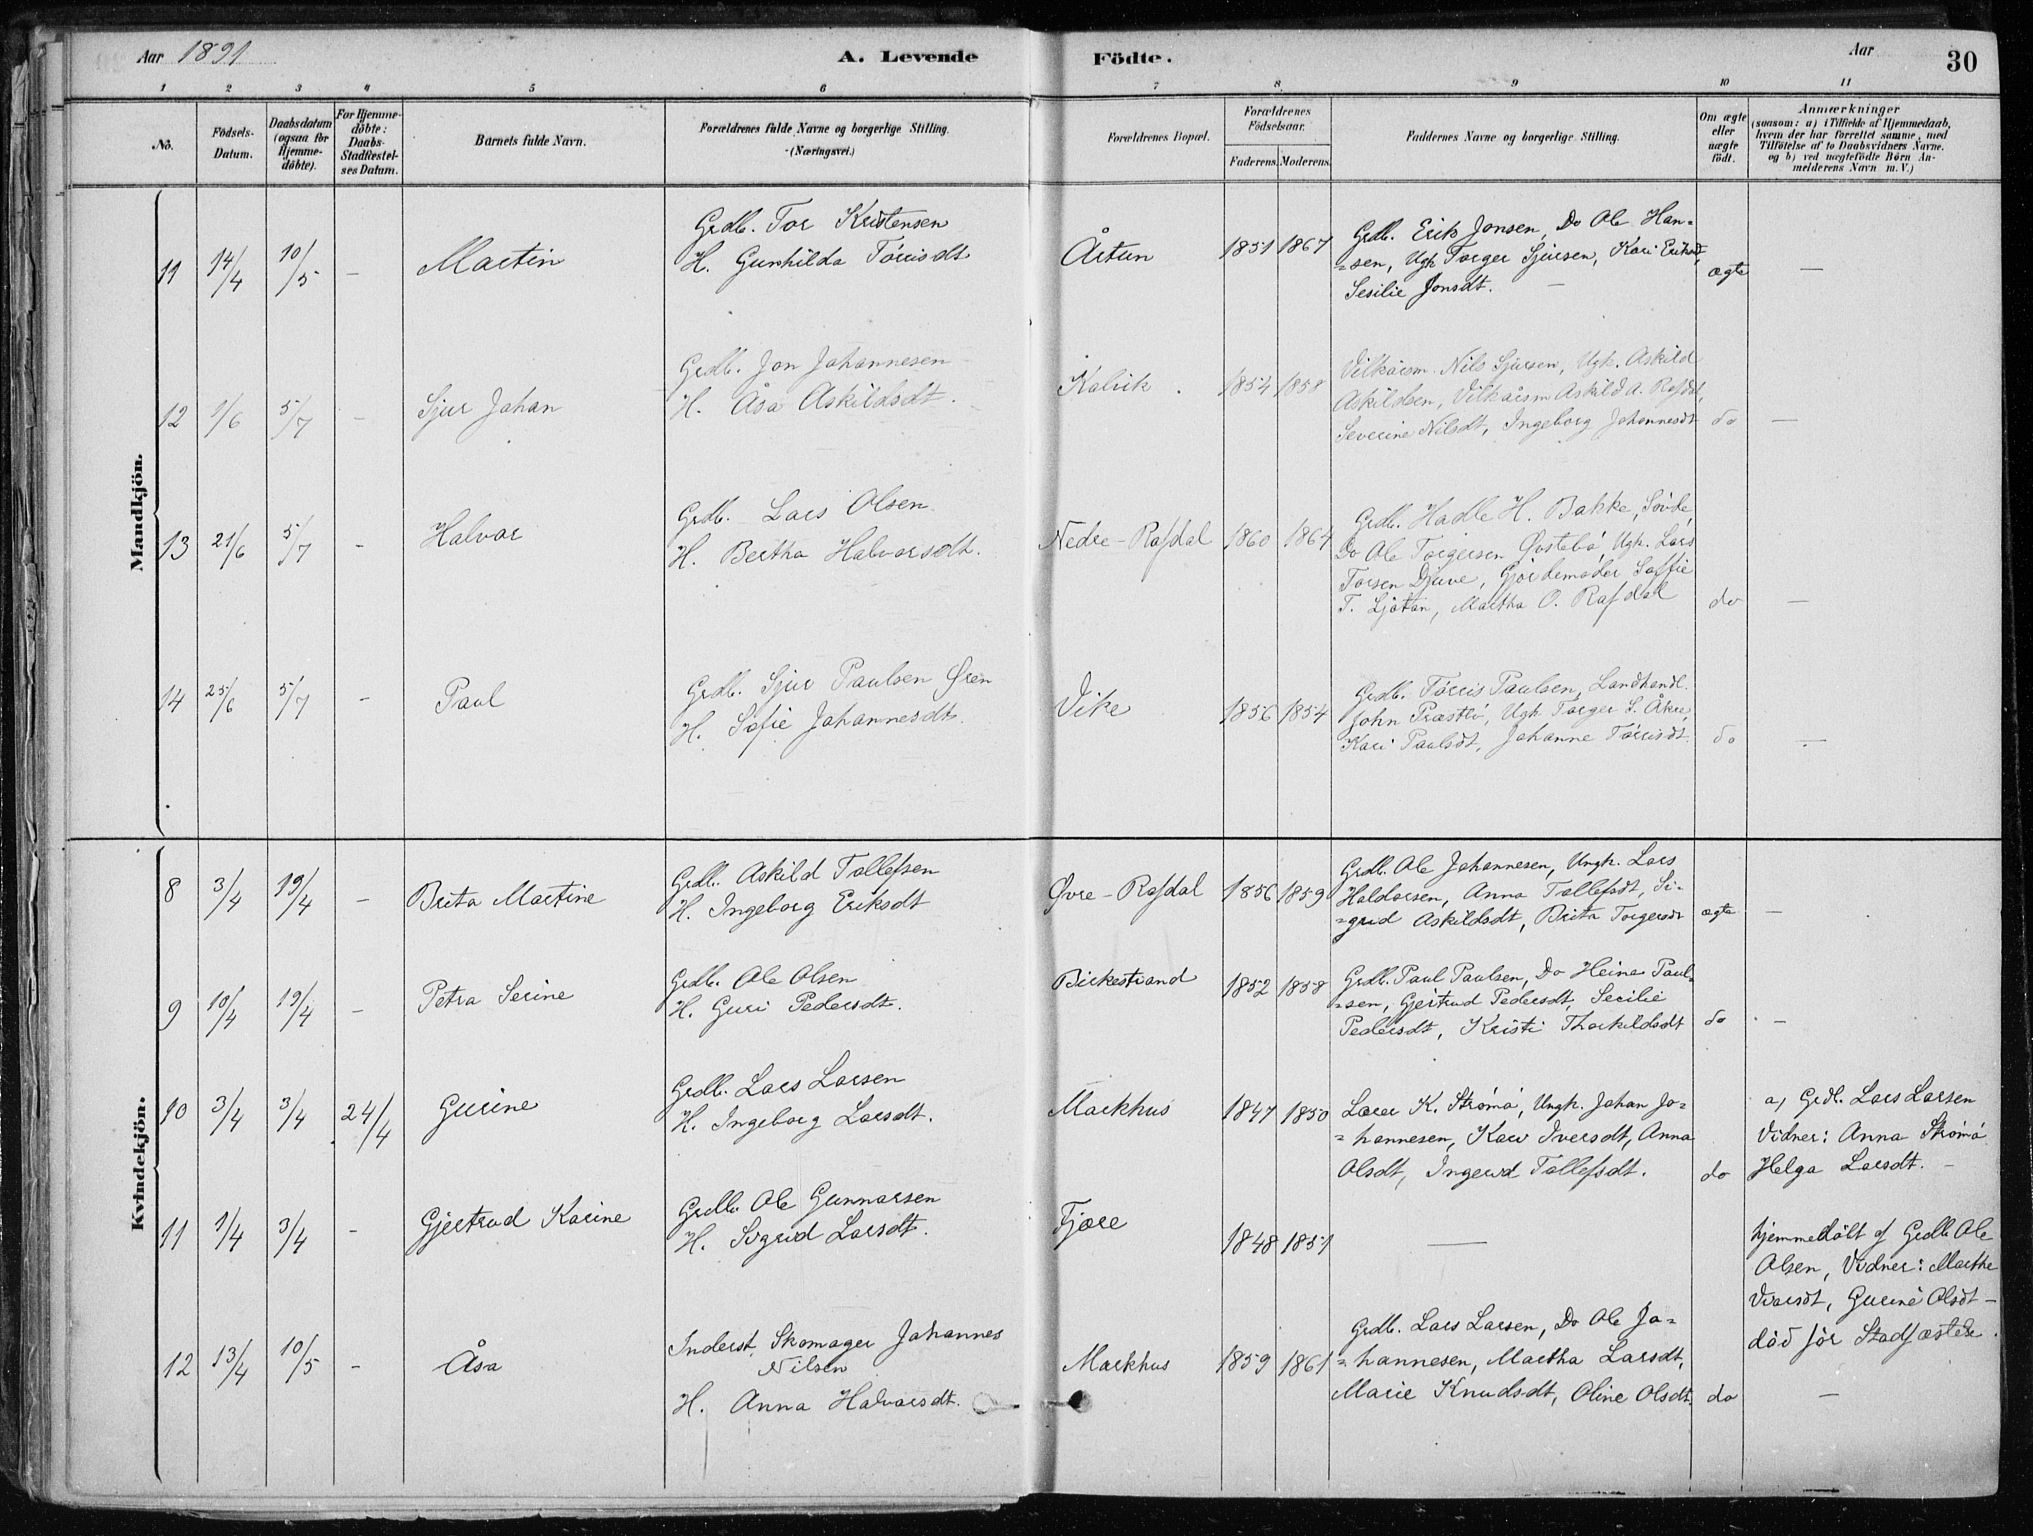 Aar 1891
A. Levende
Födte.
Aar
30
1 2 3 4 5 6 7 8. 9 10 11
No.
Födsels-
Datum.
Daabsdatum
(ogsaa för
Hjemme-
döbte).
For Hjemme-
döbte:
Daabs-
Stadfæstel-
ses Datum.
Barnets fulde Navn.
Forældrenes fulde Navne og borgerlige Stilling.
(Næringsvei.)
Forældrenes Bopæl.
Forældrenes
Födselsaar.
Faderens. Moderens.
Faddernes Navne og borgerlige Stilling.
Om ægte
eller
uægte
födt.
Anmærkninger
(saasom: a) i Tilfælde af Hjemmedaab,
hvem der har forrettet samme, med
Tilföielse af to Daabsvidners Navne.
og b) ved uægtefödte Börn An-
melderens Navn m.V.)
Mandkjön.
11 14/4 10/5 – Martin
Grdb. Tor Kristensen
H. Gunhilda Tórrisdt
Årtun 1851 1867
Grdb. Erik Jonsen, Do Ole Han=
=sen, Ugk Torger Sjursen, Kari Eriksdt,
Sesilie Jonsdt. –
ægte –
12 1/6 5/7 – Sjur Johan
Grdb. Jon Johannesen
H. Åsa Askildsdt.
Kalvik. 1854 1858
Vilkårsm. Nils Sjursen, Ugk. Askild
Askildsen, Vilkårsm Askild A. Rafdal,
Severine Nilsdt, Ingeborg Johannesdt
do –
13 21/6 5/7 – Halvar
Grdb. Lars Olsen
H. Bertha Halvarsdt.
Nedre-Rafdal 1860 1864
Grdb. Hadle H. Bakke, Søvde,
Do Ole Torgersen Øvstebó, Ugk. Lars
Torsen Djuve, Gjórdemoder Soffie
T. Ljótan, Martha O. Rafdal
do –
14 25/6 5/7 – Paul
Grdb. Sjur Paulsen Øren
H. Sofie Johannesdt.
Vike 1856 1854
Grdb. Tórris Paulsen, Landhandl.
John Præstbó, Ugk Torger S. Åkre,
Kari Paulsdt, Johanne Tórrisdt.
do –
Kvindekjön.
8 3/4 19/4 – Brita Martine
Grdb. Askild Tollefsen
H. Ingeborg Eriksdt
Øvre-Rafdal 1856 1859
Grdb. Ole Johannesen, Ungk. Lars
Haldorsen, Anna Tollefsdt, Si-
=grid Askildsdt, Brita Torgersdt
ægte –
9 10/4 19/4 – Petra Serine
Grdb. Ole Olsen
H. Guri Pedersdt.
Birkestrand 1852 1858
Grdb. Paul Paulsen, Do Heine Paul-
=sen, Gjertrud Pedersdt, Secilie
Pedersdt, Kristi Thorkildsdt
do –
10 3/4 3/4 24/4 Gurine
Grdb. Lars Larsen
H. Ingeborg Larsdt.
Markhus 1847 1850
Lærer K. Strømó, Ungk. Johan Jo=
=hannesen, Kari Iversdt, Anna
Olsdt, Ingerid Tollefsdt.
do
a) Grdb. Lars Larsen
Vidner: Anna Strømó
Helga Larsdt. –
11 1/4 3/4 – Gjertrud Karine
Grdb. Ole Gunnarsen
H. Sigrid Larsdt.
Fjære 1848 1851
–
hjemmedóbt af Grdb Ole
Olsen, Vidner: Marthe
Ivarsdt, Gurine Olsdt –
dód fór Stadfæstelse.
12 13/4 10/5 – Åsa
Inderst, Skomager Johannes
Nilsen
H. Anna Halvarsdt.
Markhus 1859 1861
Grdb. Lars Larsen, Do Ole Jo=
=hannesen, Martha Larsdt,
Marie Knudsdt, Oline Olsdt.
do –